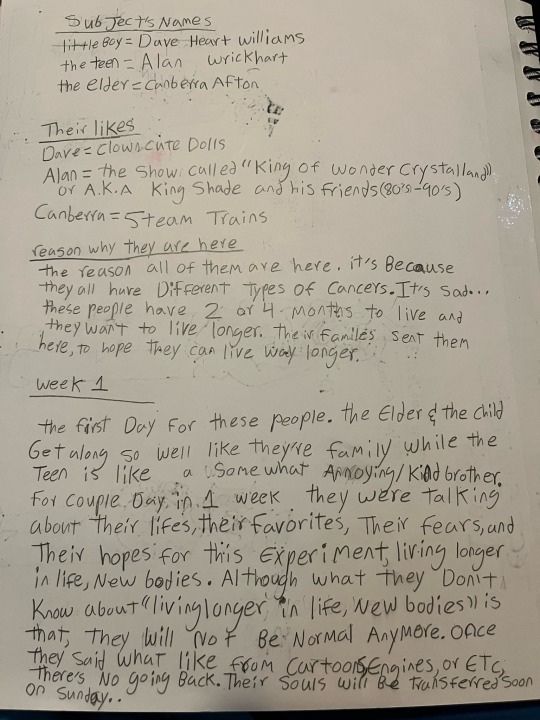 Subject's Names
little Boy = Dave Heart williams
the teen = Alan Wrickhart
the elder = Canberra Afton
Their likes
Dave = Clown cute Dolls
Alan = the Show called "King of Wonder Crystalland"
or A.K.A King Shade and his friends (80's-90's)
Canberra = Steam Trains
reason why they are here
the reason all of them are here. it's Because
they all have Different types of Cancers. It's sad...
these people have 2 or 4 months to live and
they want to live longer. Their familes sent them
here, to hope they can live way longer.
week 1
the first Day for these people. the Elder & the child
Get along so well like they're family while the
Teen is like a Somewhat Annoying/Kind brother.
For couple Day in 1 week they were talking
about their lifes, their favorites, Their fears, and
Their hopes for this Experiment, living longer
in life, New bodies. Although what they Don't
Know about "living longer in life, New bodies" is
that, they will Not Be Normal Anymore. Once
they said what like from Cartoons, Engines, or ETC,
There's No going Back. Their Souls will Be transferred soon
on Sunday..